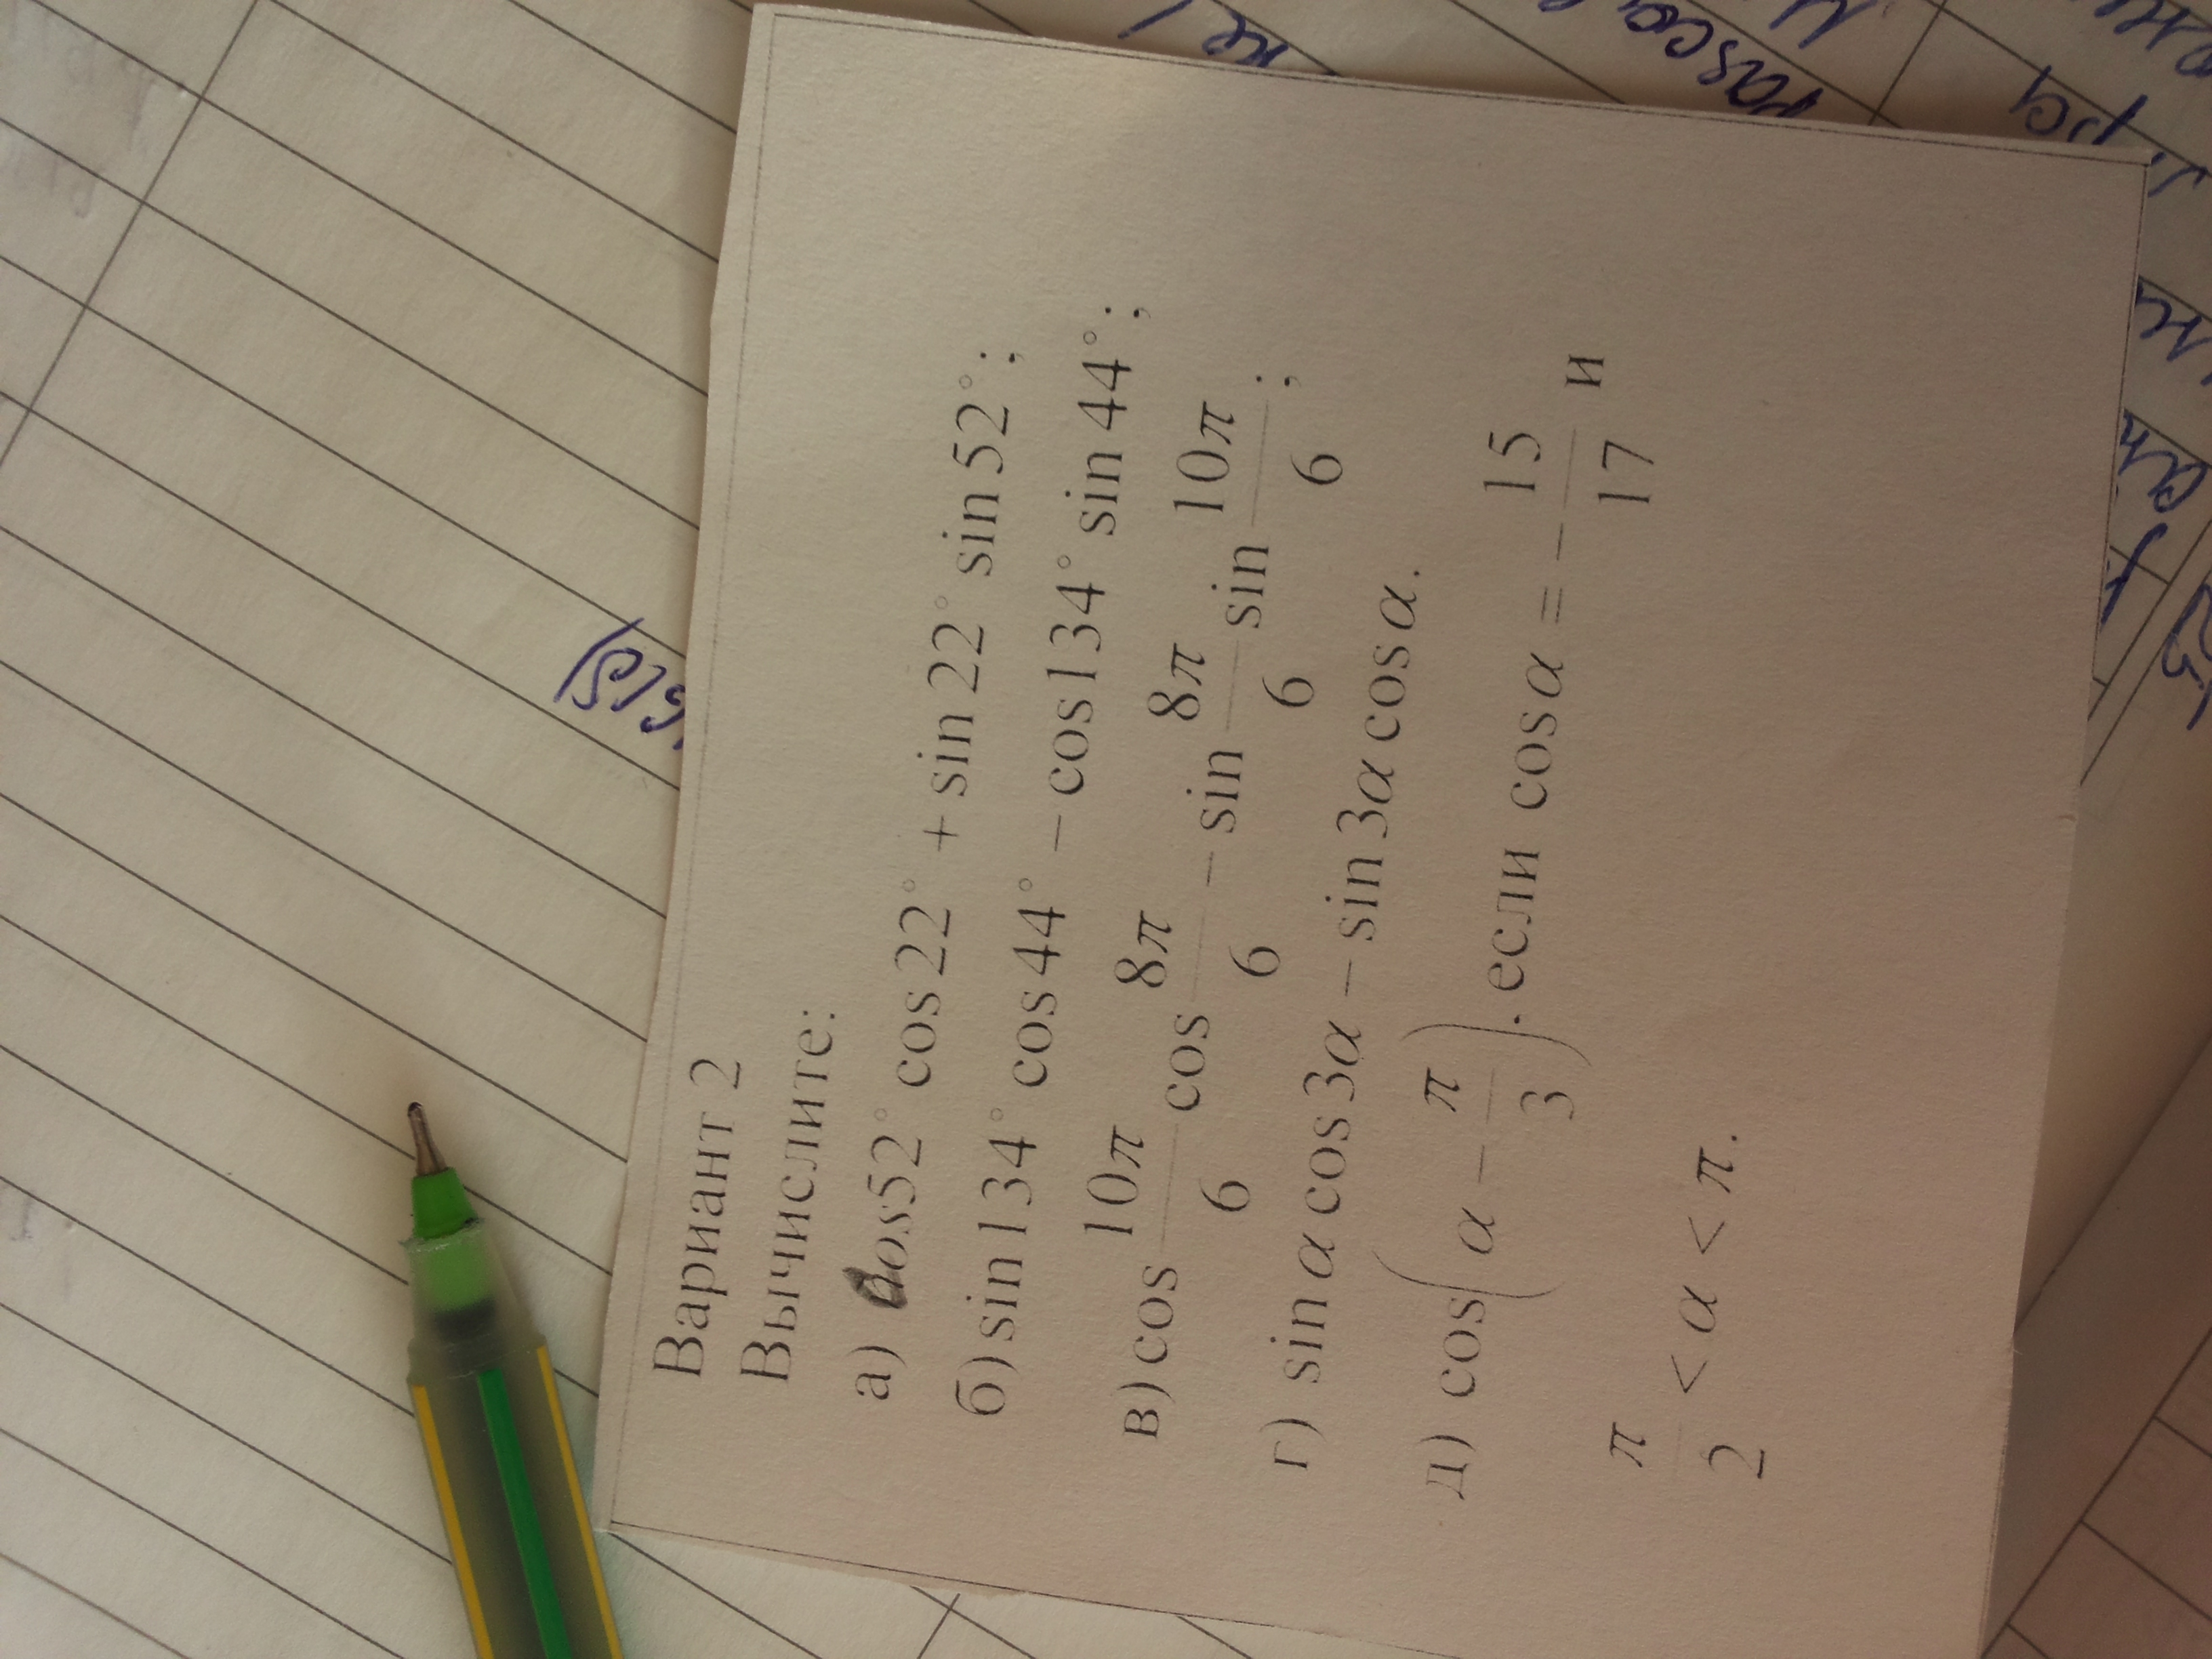 Вариант 2
Вычислите:
а) cos52° cos22° + sin22° sin52°;
б) sin134° cos44° − cos134° sin44°;
в) cos 10π/6 cos 8π/6 − sin 8π/6 sin 10π/6;
г) sin α cos3α − sin3α cos α.
д) cos(α − π/3). если cos α = − 15/17 и
π/2 < α < π.